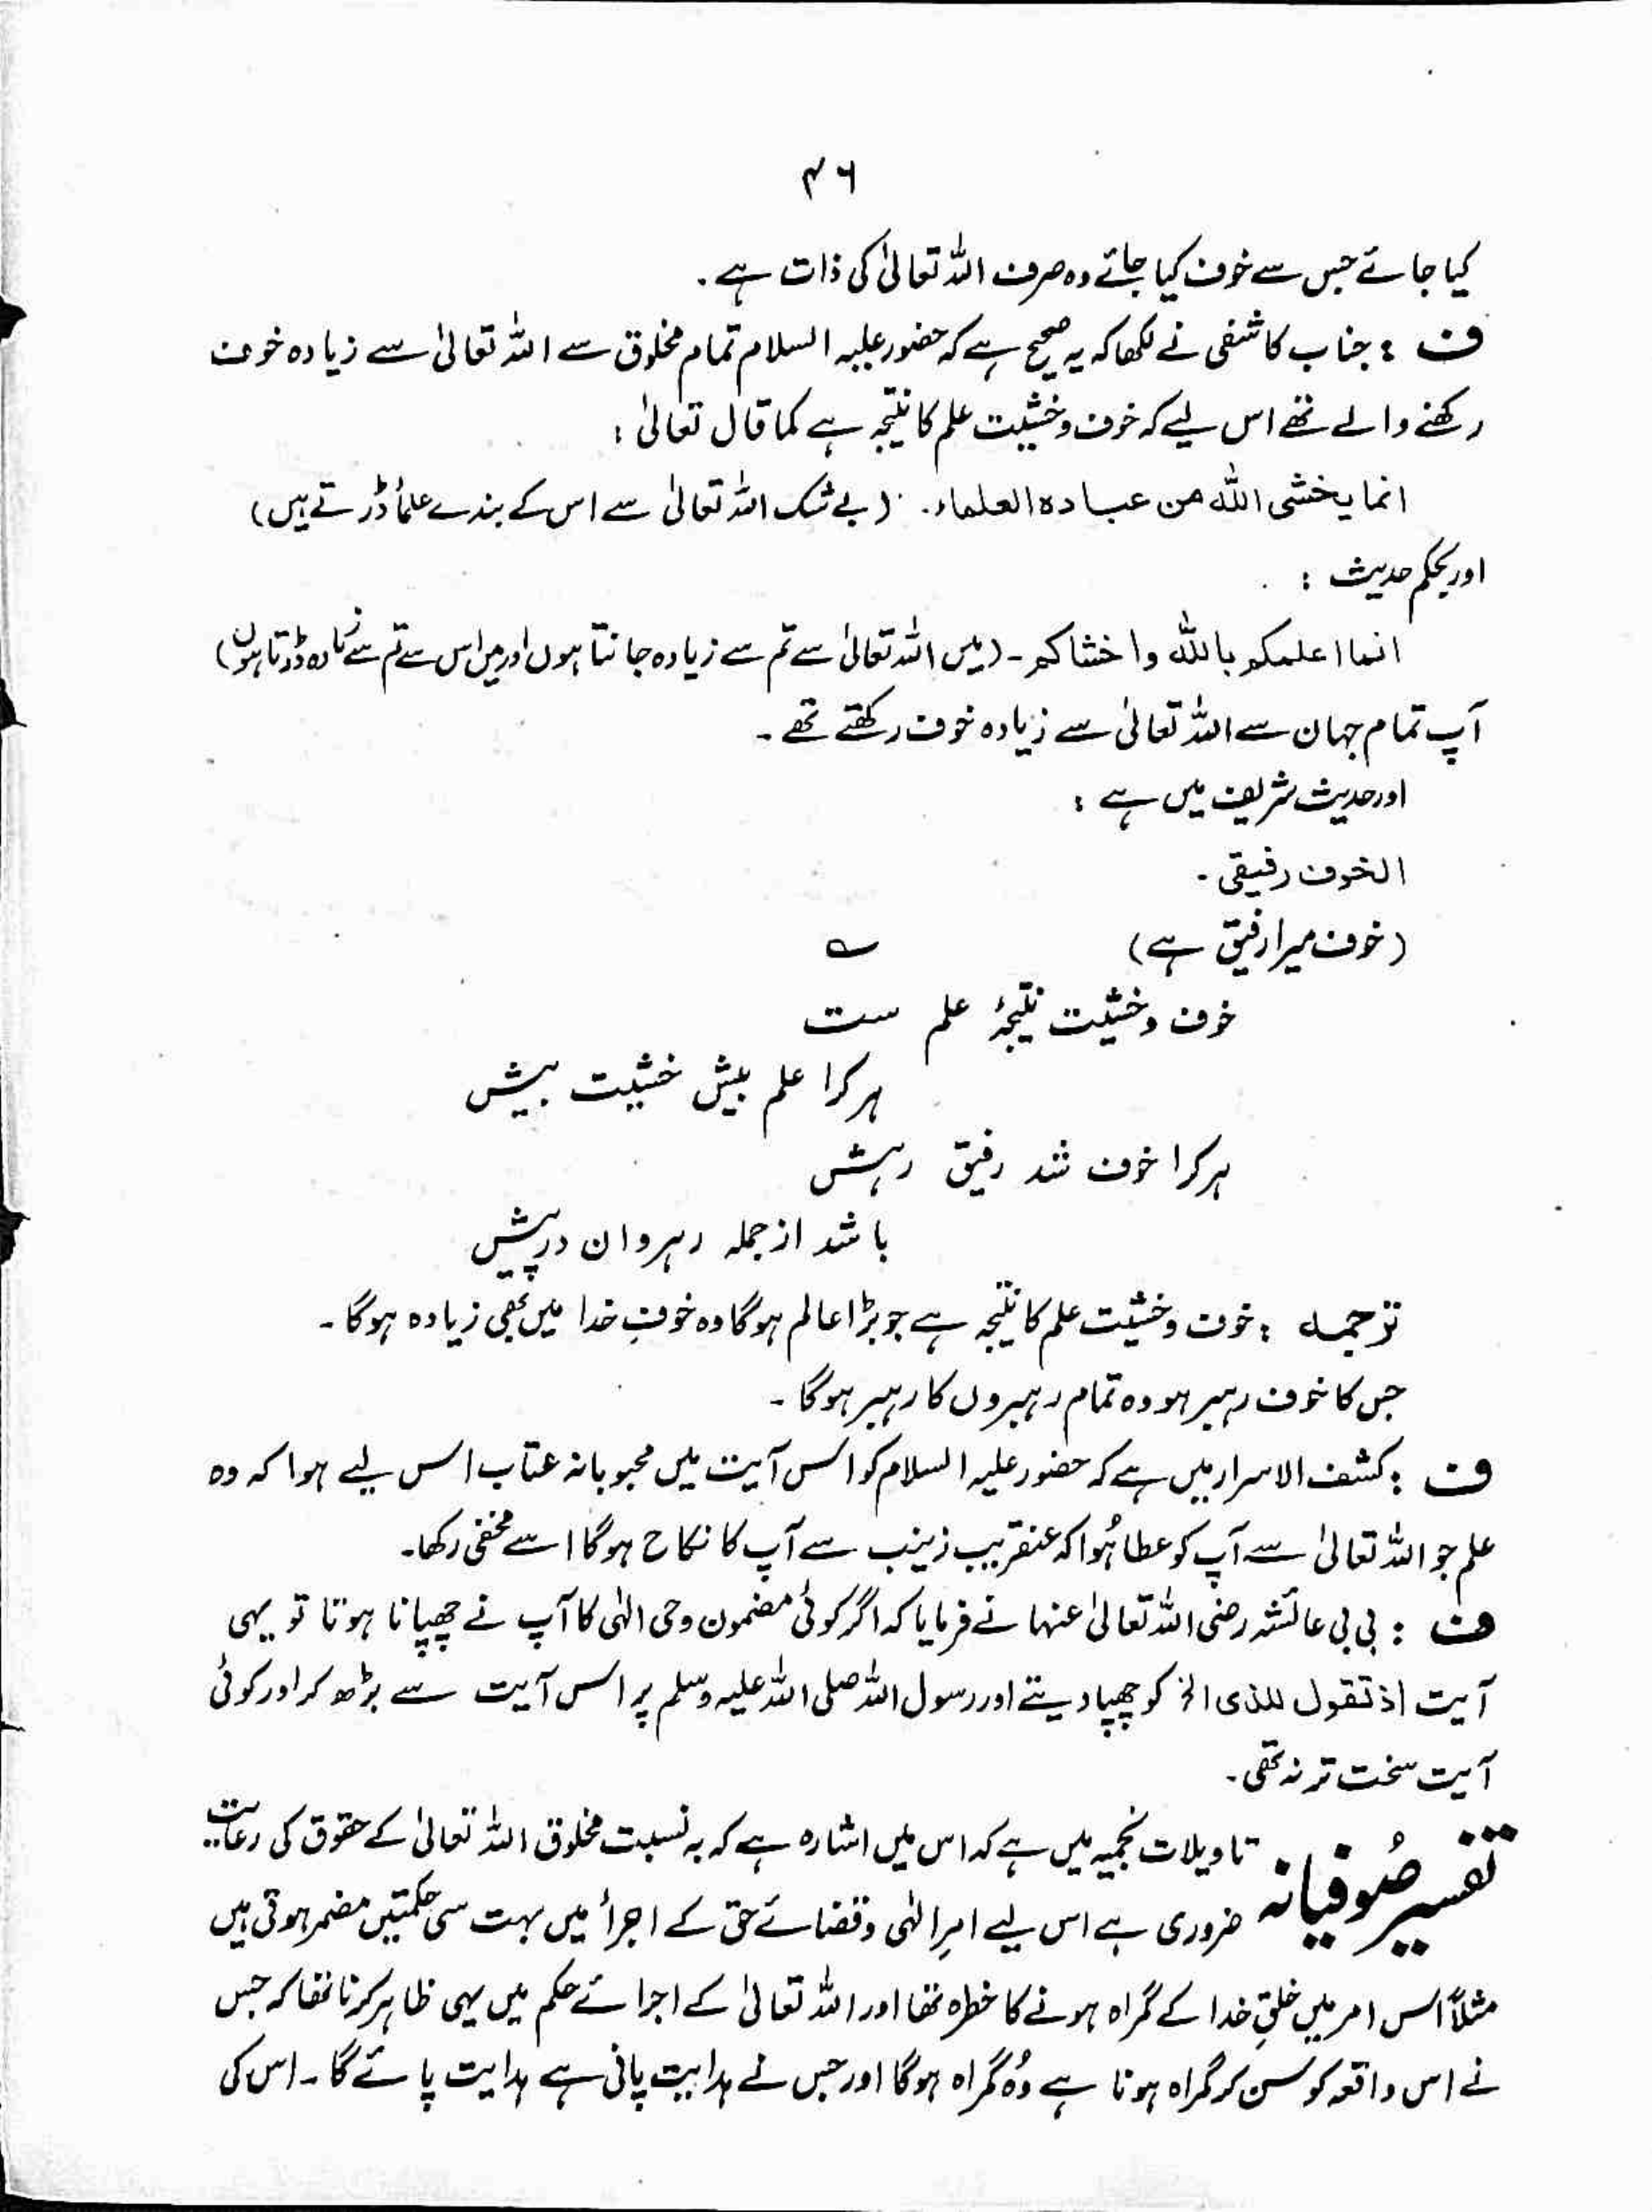 ۴۶
کیا جائے جس سے خوف کیا جائے وہ صرف اللہ تعالیٰ کی ذات ہے۔
ف : جناب کاشفی نے لکھا کہ یہ صحیح ہے کہ حضور علیہ السلام تمام مخلوق سے اللہ تعالیٰ سے زیادہ خوف
رکھنے والے تھے اس لیے کہ خوف و خشیت علم کا نتیجہ ہے کما قال تعالیٰ :
انما یخشی اللہ من عبادہ العلماء۔ (بے شک اللہ تعالیٰ سے اس کے بندے علماٗ ڈرتے ہیں)
اور بحکم حدیث :
انما اعلمکم باللہ واخشاکم ۔ (میں اللہ تعالیٰ سے تم سے زیادہ جانتا ہوں اور میں اس سے تم سے زیادہ ڈرتا ہوں)
آپ تمام جہان سے اللہ تعالیٰ سے زیادہ خوف رکھتے تھے ۔
اور حدیث شریف میں ہے :
الخوف رفیقی ۔
(خوف میرا رفیق ہے) ؎
خوف و خشیت نتیجۂ علم ست
ہر کرا علم بیش خشیت بیش
ہر کرا خوف شد رفیق رہش
باشد از جملہ رہروان درپیش
ترجمہ : خوف و خشیت علم کا نتیجہ ہے جو بڑا عالم ہوگا وہ خوفِ خدا میں بھی زیادہ ہوگا ۔
جس کا خوف رہبر ہو وہ تمام رہبروں کا رہبر ہوگا ۔
ف : کشف الاسرار میں ہے کہ حضور علیہ السلام کو اس آیت میں محبوبانہ عتاب اس لیے ہوا کہ وہ
علم جو اللہ تعالیٰ سے آپ کو عطا ہُوا کہ عنقریب زینب سے آپ کا نکاح ہوگا اسے مخفی رکھا۔
ف : بی بی عائشہ رضی اللہ تعالیٰ عنہا نے فرمایا کہ اگر کوئی مضمون وحی الٰہی کا آپ نے چھپانا ہوتا تو یہی
آیت اذ تقول للذی الخ کو چھپا دیتے اور رسول اللہ صلی اللہ علیہ وسلم پر اس آیت سے بڑھ کر اور کوئی
آیت سخت تر نہ تھی۔
تفسیر صُوفیانہ تاویلات نجمیہ میں ہے کہ اس میں اشارہ ہے کہ بہ نسبت مخلوق اللہ تعالیٰ کے حقوق کی رعایت
ضروری ہے اس لیے امرِ الٰہی و قضائے حق کے اجراٗ میں بہت سی حکمتیں مضمر ہوتی ہیں
مثلاً اس امر میں خلقِ خدا کے گمراہ ہونے کا خطرہ تھا اور اللہ تعالیٰ کے اجرائے حکم میں یہی ظاہر کرنا تھا کہ جس
نے اس واقعہ کو سن کر گمراہ ہونا ہے وُہ گمراہ ہوگا اور جس نے ہدایت پانی ہے ہدایت پائے گا ۔ اس کی